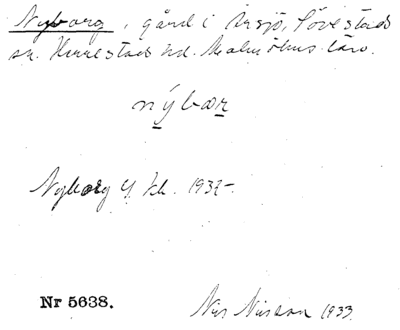 Nyborg, gård i Årsjö, Lövestads
sn. Herrestads hd. Malmöhus län.
nýbær
Nyborg Y. kh. 1932–
Nr 5638.
Nils Nilsson 1933.